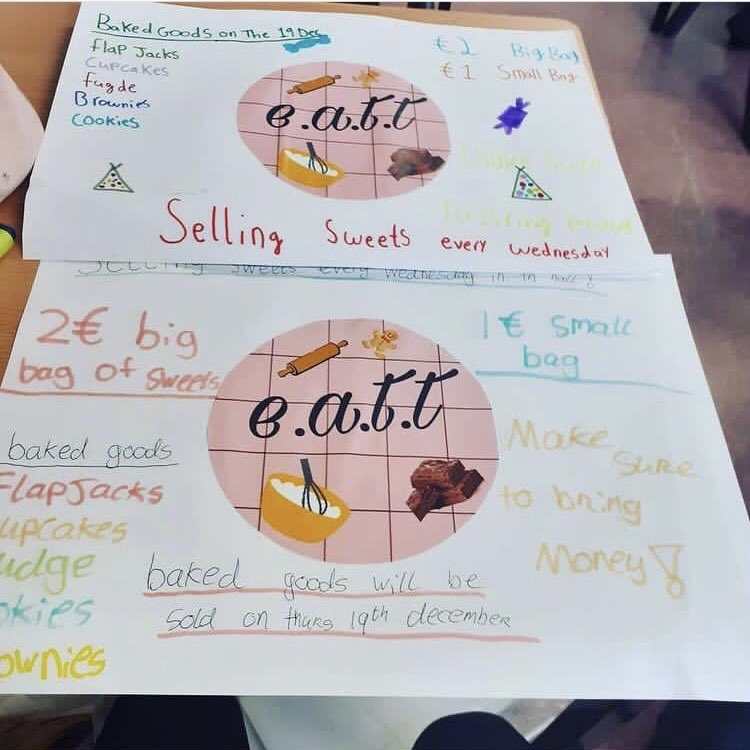 Baked Goods on The 19 Dec
Flap Jacks
Cupcakes
Fugde
Brownies
Cookies
€2 Big Bag
€1 Small Bag
e.a.t.t
to Bring
Selling Sweets every wednesday
Selling Sweets every wednesday in
2€ big
bag of sweets
1€ small
bag
e.a.t.t
baked goods
FlapJacks
upcakes
udge
okies
ownies
Make
Sure
to bring
Money!
baked goods will be
sold on thurs 19th december